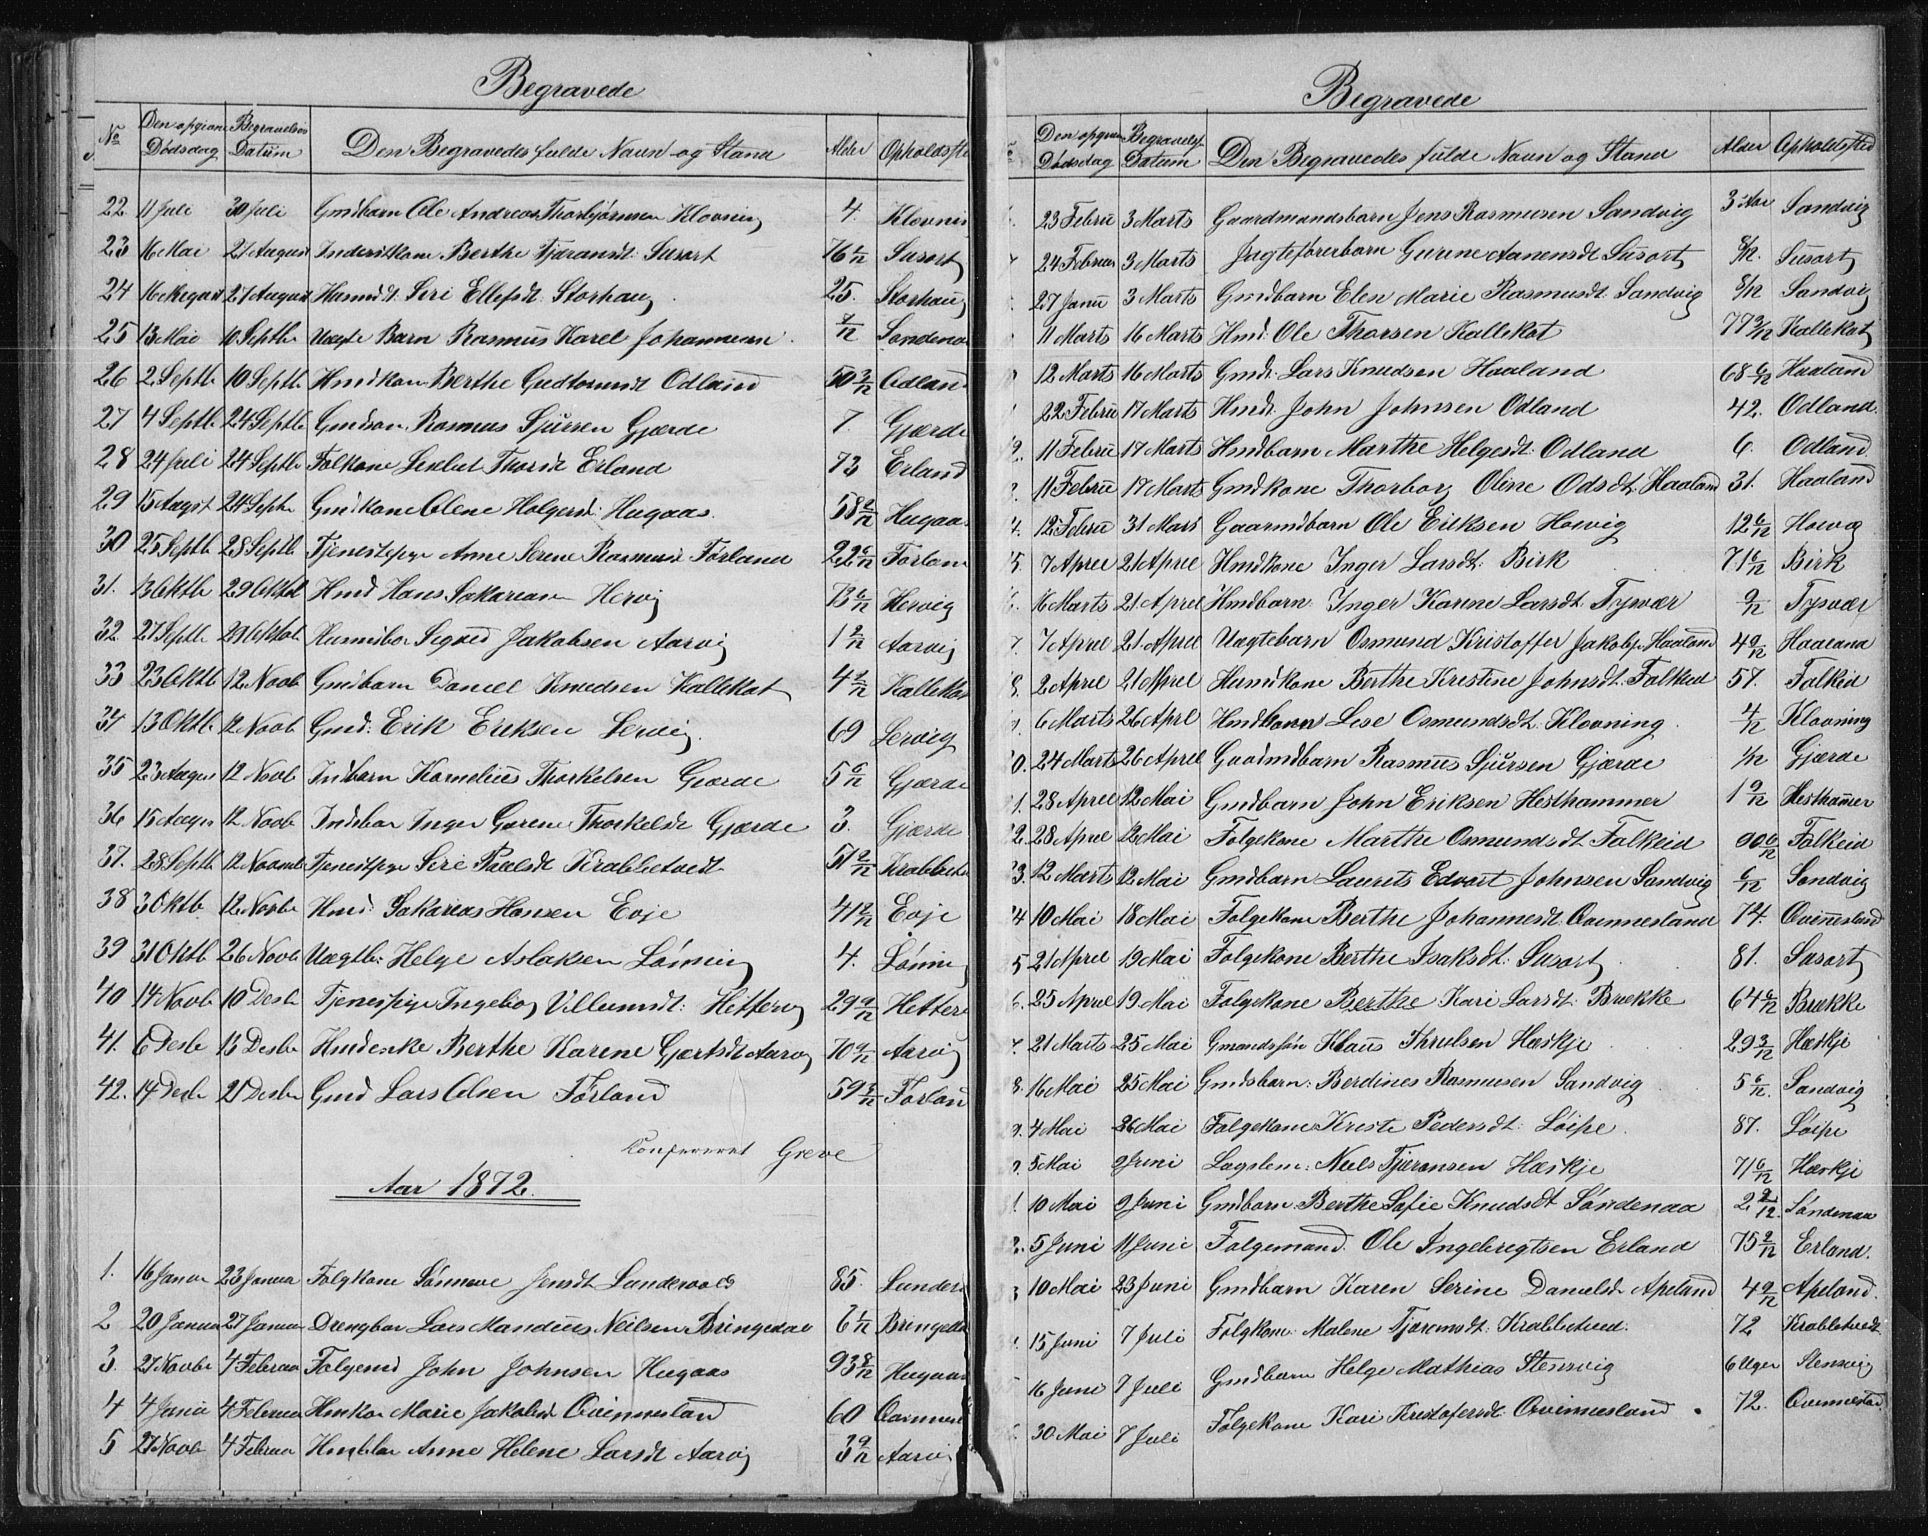 Begravede
No Den opgivne Dødsdag Begravelses Datum Den Begravedes fulde Navn og Stand Alder Opholdsste
22 11 Juli 30 Juli Gmdbarn Ole Andreas Thorbjørnsen Klovning 4. Klovnin
23 16 Mai 27 August Inderstkone Berthe Tjeransdt: Susort 76 1/12 Susort
24 16 27 August Husmdt. Siri Ellefsdt Storhaug 25. Storhaug
25 13 Mai 10 Septb Uægte Barn Rasmus Karel Johannesen 7/12 Søndena
26 2 Septb 10 Septb Hmdkon Berthe Gudtormsdt Odland 50 3/12 Odland
27 4 Septb 24 Septb Gmdsøn Rasmus Sjursen Gjærde 7. Gjærde
28 24 Juli 24 Septb Folkone Lisebet Thorsdt Erland 73 Erland
29 15 Augst 24 Septb Gmdkone Olene Holgersd: Hugaas 58 2/12 Hugaas
30 25 Septb 28 Septb Tjenestpige Anne Serene Rasmusdt Førland 22 6/12 Førlan
31. 13 Oktb 29 Oktb Hmd Hans Sakariasen Hervig 73 6/12 Hervig
32 27 Septb 29 Oktob Husmsbar Sigved Jakobsen Aarvig 1 2/12 Aarvig
33 23 Oktb 12 Novb Gmdbarn Daniel Knudsen Kallekot 4 2/12 Kalleka
34 13 Oktb 12 Novb Gmd: Erik Eriksen Servig. 69 Servig
35 23 Auges 12 Novb Indbarn Kornelius Thorkelsen Gjærde 5 6/12 Gjærde
36 15 Auges 12 Novb Indsbar Inger Gurene Thorkelsdt Gjærde 3. Gjærde
37. 28 Septb 12 Novmb Tjenestpge Siri Paalsdt Krabbetvedt 51 2/12 Krabbetv
38 3 Oktb. 12 Novbe Hmd. Sakarias Hansen Evje 41 2/12 Evje
39 31 Oktb 26 Novb Uægtb: Helge Aslaksen Lønning 4. Lønni
40 14 Novb 10 Desb Tjenestpige Ingebog Villumsdt: Hettervig 29 9/12 Hetter
41. 6 Desb 13 Desbe Hmdenke Berthe Karene Gjertsdt Aarvig 70 9/12 Aarvig
42. 14 Desb 21 Desbe Gmd Lars Olsen Førland 59 3/12 Førlan
Confereret Greve
Aar 1872.
1. 16 Janua 23 Janua Folgkone Sønneve Jensdt Sundevold 85. Sunder
2 20 Janua 27 Janua Drengbar Lars Mandius Neilsen Bringedal 6 1/12 Bringeda
3. 27 Novbe 4 Februa Folgemd John Johnsen Hugaas 93 8/12 Hugaas
4 4 Janu 4 Februa Hmkon Marie Jakobsd Qvinnesland 60 Qvinnesl
5 27 Novb 4 Februa Hmdbar Anne Helene Larsdt Aarvig 3 9/12 Aarvi
Begravede
Den opgivn Dødsdag Begravels Datum Den Begravedes fulde Navn og Stand Alder Opholdsted
23 Febru 3 Marts Gaardmandsbarn Jens Rasmusen Sandvig 3 Aar Sandvig
24 Februa 3 Marts Jagteførerbarn Gurine Aanensdt Susort 8/12. Susort
27 Janu 3 Marts Gmdbarn Elen Marie Rasmusdt Sandvig 8/12 Sandvig
11 Marts 16 Marts Hmd: Ole Thorsen Kallekot 77 3/12 Kallekot
12 Marts 16 Marts Gmdt Lars Knudsen Haaland 68 6/12 Haaland
22 Febru 17 Marts Hmdt John Johnsen Odland 42. Odland.
2. 11 Febru 17 Marts Hmdbarn Marthe Helgesdt. Odland 6. Odland.
11 Febru 17 Marts Gmdkone Thorborg Oline Odsdt Haaland 31. Haaland
4. 12 Febru 31 Mars Gaarmdbarn Ole Eriksen Hovvig 12 6/12 Hovvig
5. 7 Apree 21 Apree Hmdkone Inger Larsdt: Birk 71 6/12 Birk
16 Marts 21 Aprel Hmdbarn Inger Karine Larsdt Tysvær 9/12 Tysvær
7. 7 Aprel 21 Aprel Uægtebarn Osmund Kristoffer Jakobs: Haaland 4 9/12 Haaland
8. 2 Aprel 21 Aprel Husmdkone Berthe Kristine Johnsdt. Falkeid 57. Falkeid
6 Marts 26 Aprl Hmdbarn Lise Osmundsdt: Klovning. 4/12 Klovning
0. 24 Marts 26 Aprel Gaarmdbarn Rasmus Sjursen Gjærde 1/12 Gjærde
1. 28 Aprel 12 Mai Gmdbarn John Eriksen Hesthammer 1 9/12 Hesthamer
2. 28 Aprel 12 Mai Folgekone Marthe Osmundsdt Falkeid 90 6/12 Falkeid
3. 12 Marts 12 Mai Gmdbarn Laurits Edvart Johnsen Sandvig 6/12 Sandvig
4 10 Mai 18 Mai Folgekone Berthe Johannesdt. Qvinnesland 74. Qvinnesland
5 21 Aprel 19 Mai Folgekone Berthe Isaksdt: Susort 81. Susort
6. 25 Aprel 19 Mai Folgekone Berthe Kari Larsdt: Brekke 64 6/12 Brekke
7. 21 Marts 25 Mai Gmandssøn Klaus Thrulsen Hæskje 29 3/12 Hæskje
8. 16 Mai 25 Mai Gmdsbarn: Berdines Rasmusen Sandvig 5 6/12. Sandvig
9. 4 Mai 26 Mai Folgekone Kriste Pedersdt: Løipe. 87. Løipe
5 Mai 9 Juni Lagslem: Neels Tjeransen Hæskje 71 6/12 Hæskje
1. 10 Mai 9 Juni Gmdbarn Berthe Sofie Knudsdt Søndenaa 2 2/12. Søndenaa
2. 5 Juni 11 Juni Folgemand. Ole Ingebregtsen Erland 75 2/12 Erland.
3 10 Mai 23 Juni Gmdbarn Karen Serine Danielsd Apeland 4 9/12 Apeland.
15 Juni 7 Juli Folgkone Malene Tjæransdt: Krabbetved. 72 Krabbetvedt
16 Juni 7 Juli Gmdbarn Helge Mathias Stensvig 6 Uger Stensvig
30 Mai 7 Juli Folgekone Kari Kristofersdt Qvinnesland 72. Qvinnesland